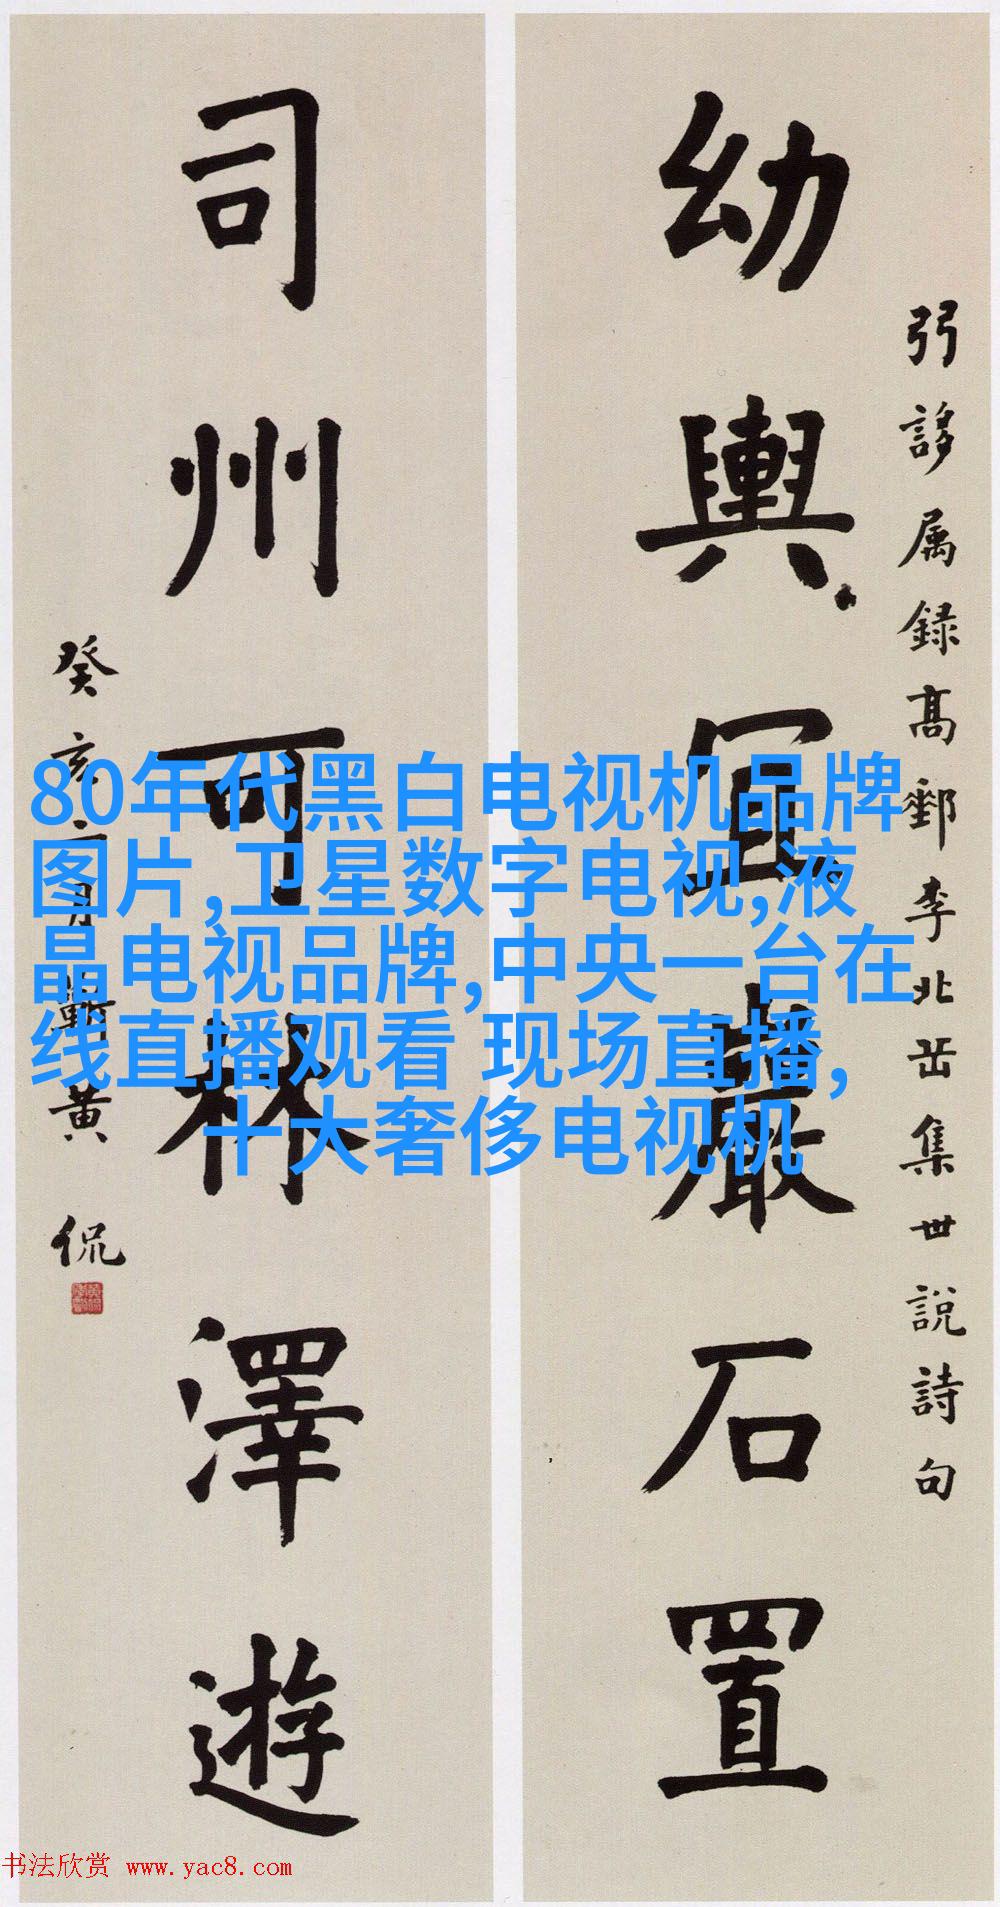 弜誃属録高郵李北集世說詩句
幼輿冝巖石置
司州可林澤遊
癸亥二月蘄黄侃
80年代黑白电视机品牌
图片,卫星数字电视,液
晶电视品牌,中央一台在
线直播观看 现场直播,
十大奢侈电视机
书法欣赏 www.yac8.com